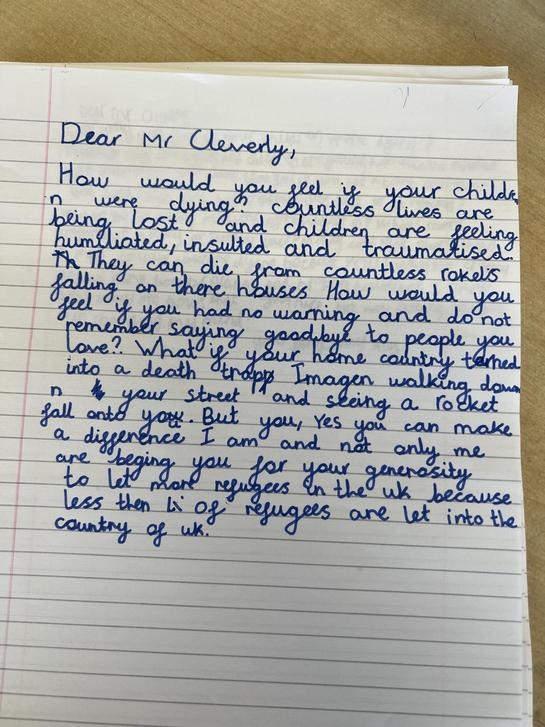 Dear Mr Cleverly,
How would you feel if your childre
n were dying? countless lives are
being lost and children are feeling
humiliated, insulted and traumatised.
They can die from countless rokets
falling on there houses How would you
feel if you had no warning and do not
remember saying goodbye to people you
love? What if your home country terned
into a death trapp Imagen walking down
n your street and seeing a rocket
fall onto you. But you, Yes you can make
a difference I am and not only me
are beging you for your generosity
to let more refugees in the uk because
less then of refugees are let into the
country of uk.